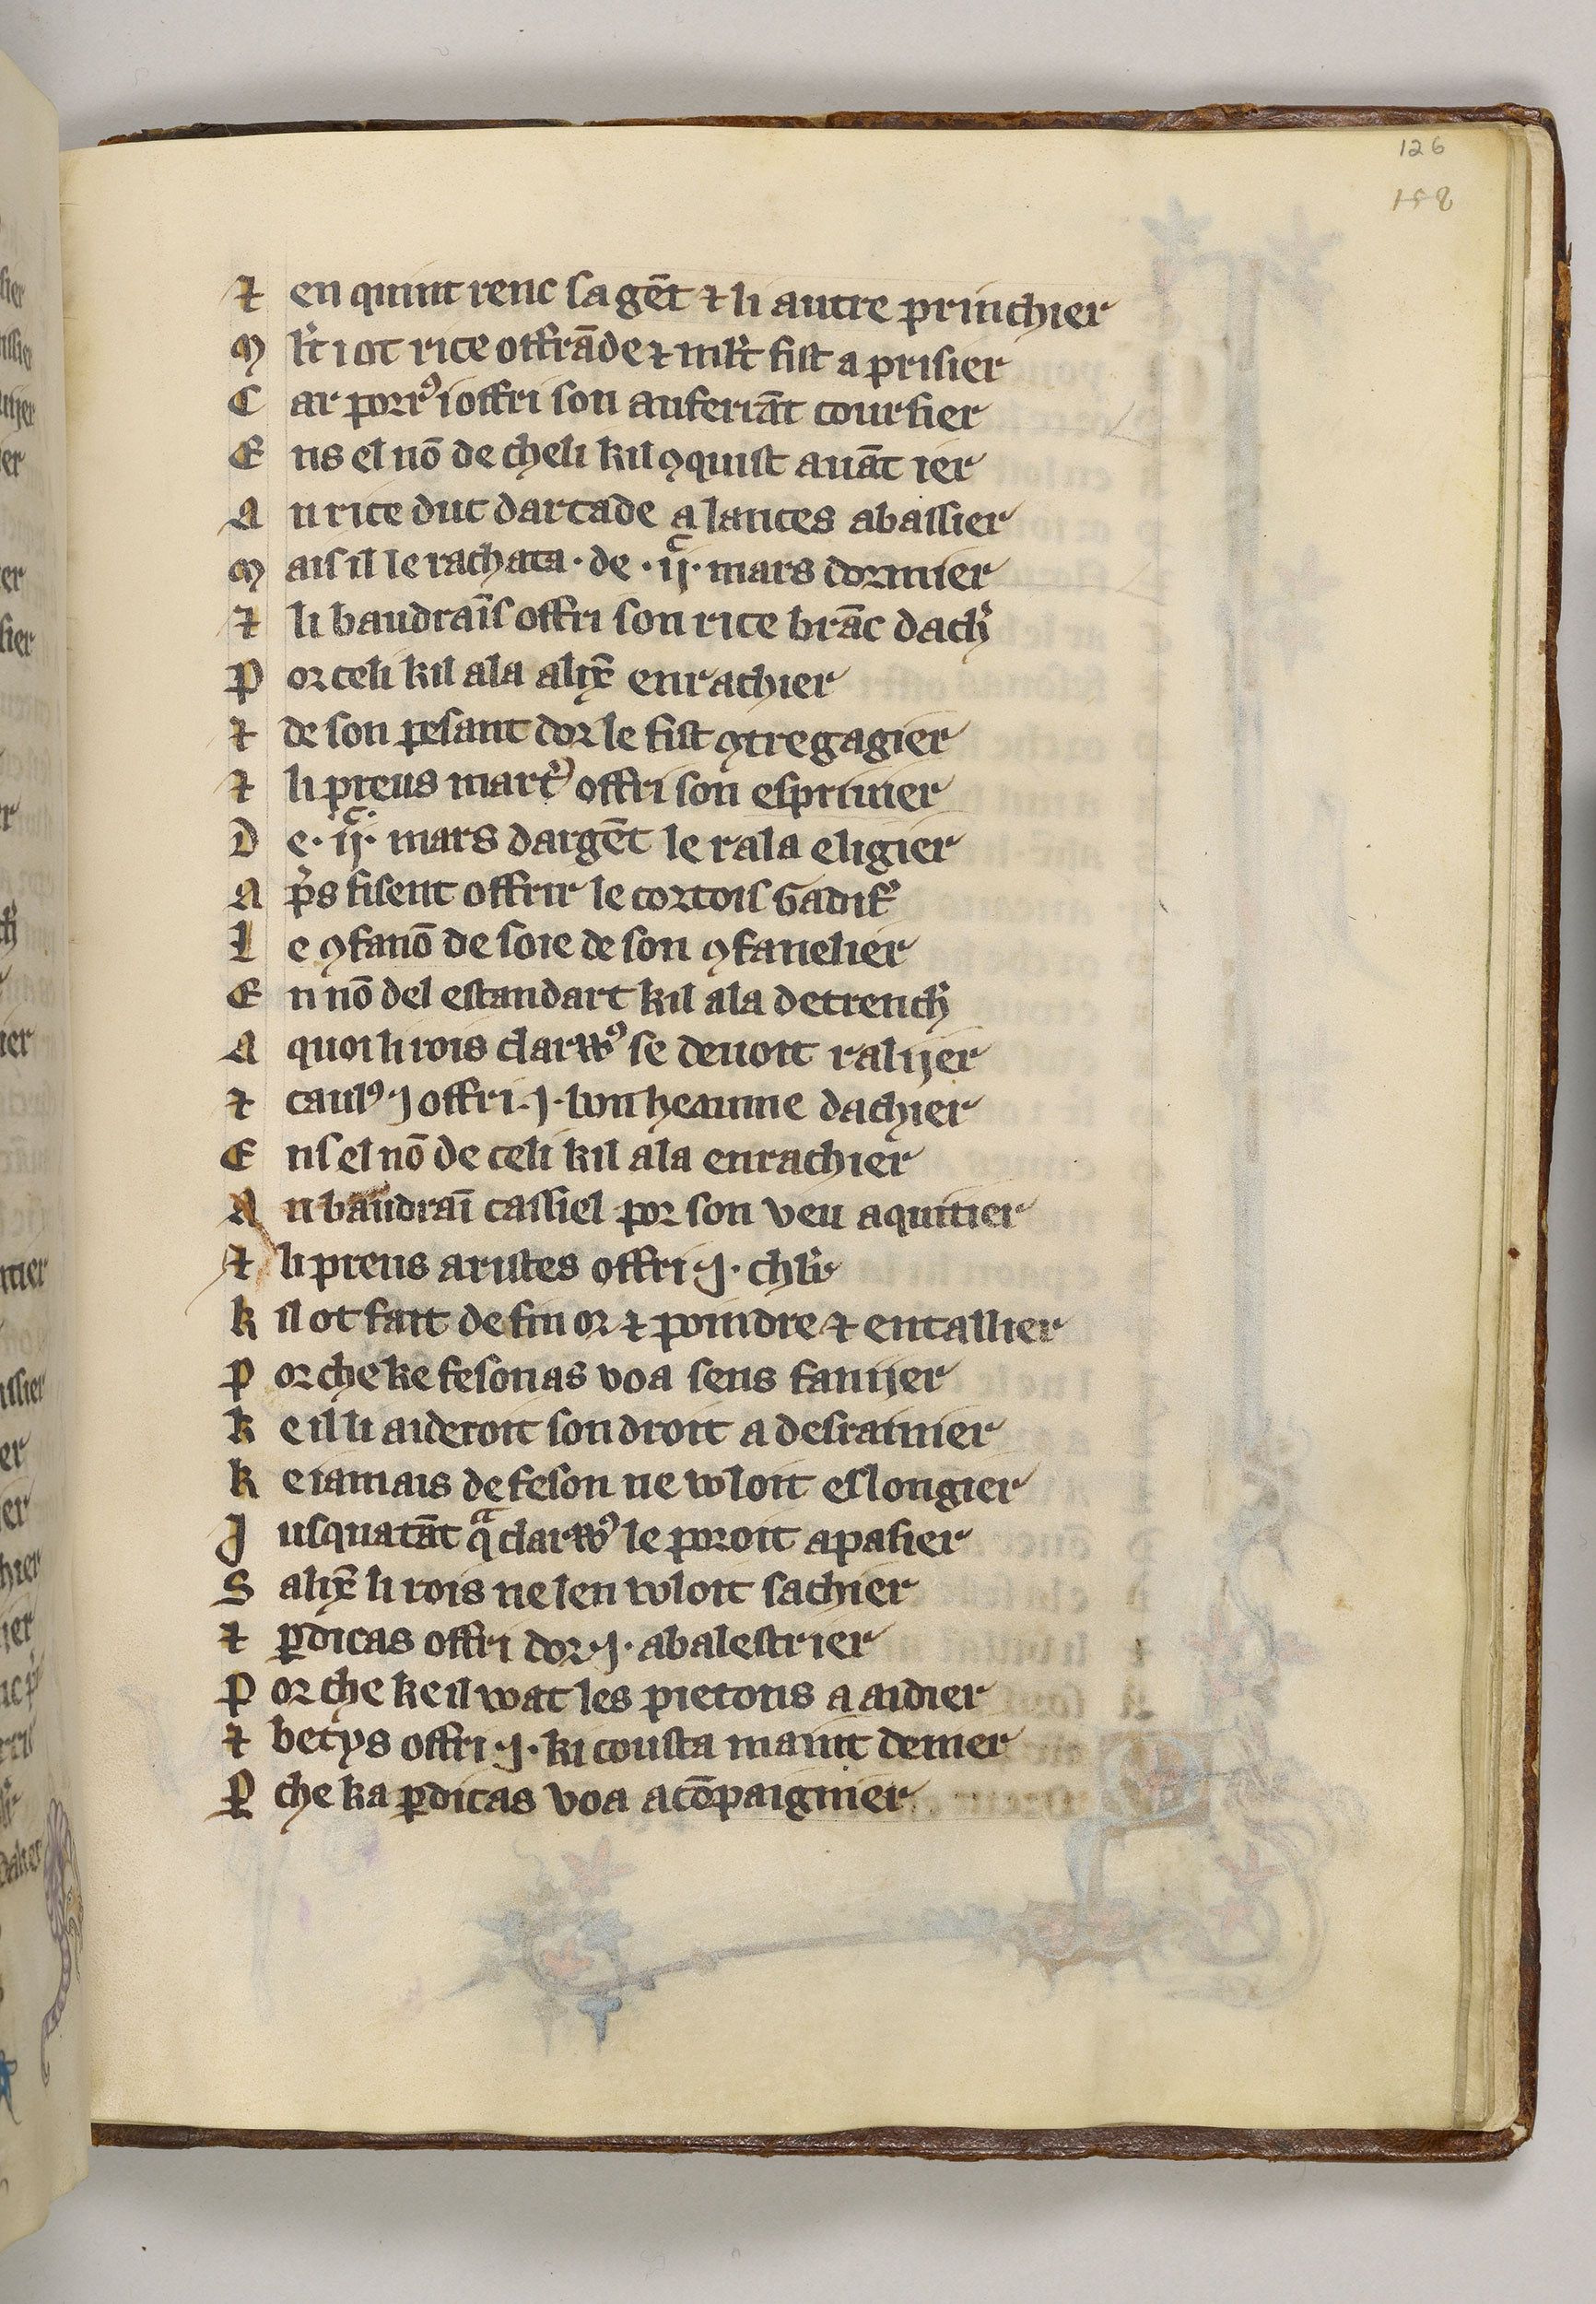 126
158
⁊ en quint renc sa gēt ⁊ li autre princhier
M l't i ot rice offrāde ⁊ ml't fist a prisier
C ar porr᾿ i offri son auferrāt coursier
E ns el nō de cheli kil ꝯquist auāt ier
A n rice duc darcade a lances abaissier
M ais il le rachata · de · ij᷾ · mars dormier
⁊ li baudraīs offri son rice brāc dach᾿
P or celi kil ala alix̄ enrachier
⁊ de son pesant dor le fist ꝯtregagier
⁊ li preus mart᾿ offri son espriuier
D e · ij᷾ · mars dargēt le rala eligier
A p᾿s fisent offrir le cortois Gadif᾿
L e ꝯfanō de soie de son ꝯfanelier
E n nō del estandart kil ala detrench᾿
A quoi li rois clarw᾿ se deuoit ralijer
⁊ caulꝰ · j offri · j · bon heaume dachier
E ns el nō de celi kil ala enrachier
A n baudraī cassiel por son veu aquitier
⁊ li preus aristes offri · j · chl'r
k il ot fait de fin or ⁊ poindre ⁊ entallier
P or che ke fesonas voa sens fannijer
k e il li aideroit son droit a desrainier
k e iamais de feson ne wloit eslongier
J usqua tāt qᵃ clarw᾿ le poroit apasier
S alix̄ li rois ne len wloit sachier
⁊ ꝑdicas offri dor · j · abalestrier
P or che ke il woat les pietons a aidier
⁊ betys offri · j · ki cousta maint denier
Ꝑ che ka ꝑdicas voa acōpaignier